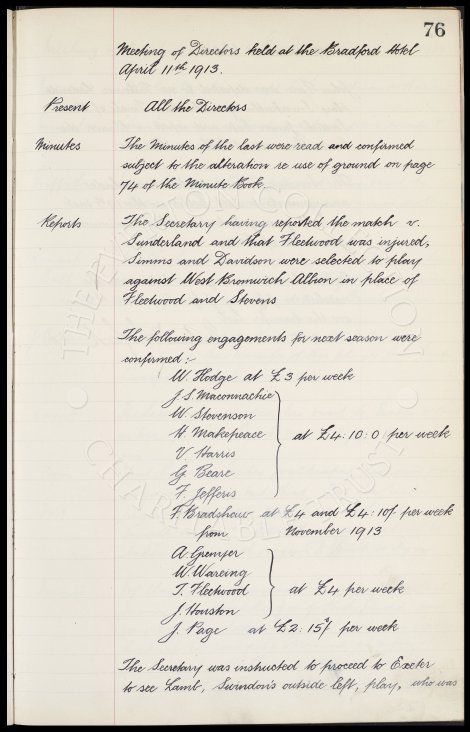 76
Meeting of Directors held at the Bradford Hotel
April 11th 1913.
Present All the Directors
Minutes The Minutes of the last were read and confirmed
subject to the alteration re use of ground on page
74 of the Minute Book.
Reports The Secretary having reported the match v.
Sunderland and that Fleetwood was injured,
Simms and Davidson were selected to play
against West Bromwich Albion in place of
Fleetwood and Stevens
The following engagements for next season were
confirmed:-
W. Hodge at £3 per week
J. S. Maconnachie
W. Stevenson
H. Makepeace at £4:10:0 per week
V. Harris
G. Beare
F. Jefferis
F. Bradshaw at £4 and £4:10/- per week
from November 1913
A. Grenyer
W. Wareing
T. Fleetwood at £4 per week
J. Houston
J. Page at £2:15/- per week
The Secretary was instructed to proceed to Exeter
to see Lamb, Swindon's outside left, play, who was
THE EVERTON COLLECTION
CHARITABLE TRUST